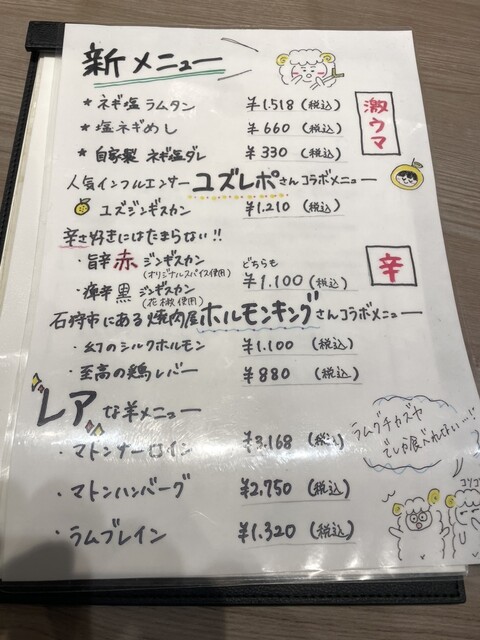 新メニュー
* ネギ塩 ラムタン ¥1.518 (税込)
* 塩ネギめし ¥660 (税込)
* 自家製 ネギ塩ダレ ¥330 (税込)
激ウマ
人気インフルエンサー ユズレポさんコラボメニュー
ユズジンギスカン ¥1.210 (税込)
辛さ好きにはたまらない!!
辛
・旨辛 赤 ジンギスカン どちらも
(オリジナルスパイス使用) ¥1.100 (税込)
・痺辛 黒 ジンギスカン
(花椒使用)
石狩市にある焼肉屋ホルモンキングさんコラボメニュー
・幻のシルクホルモン ¥1.100 (税込)
・至高の鶏レバー ¥880 (税込)
レアな羊メニュー
・マトンサーロイン ¥3.168 (税込)
・マトンハンバーグ ¥2.750 (税込)
・ラムブレイン ¥1.320 (税込)
ラムグチカズヤ
でしか食べれなーい!
コソコソ